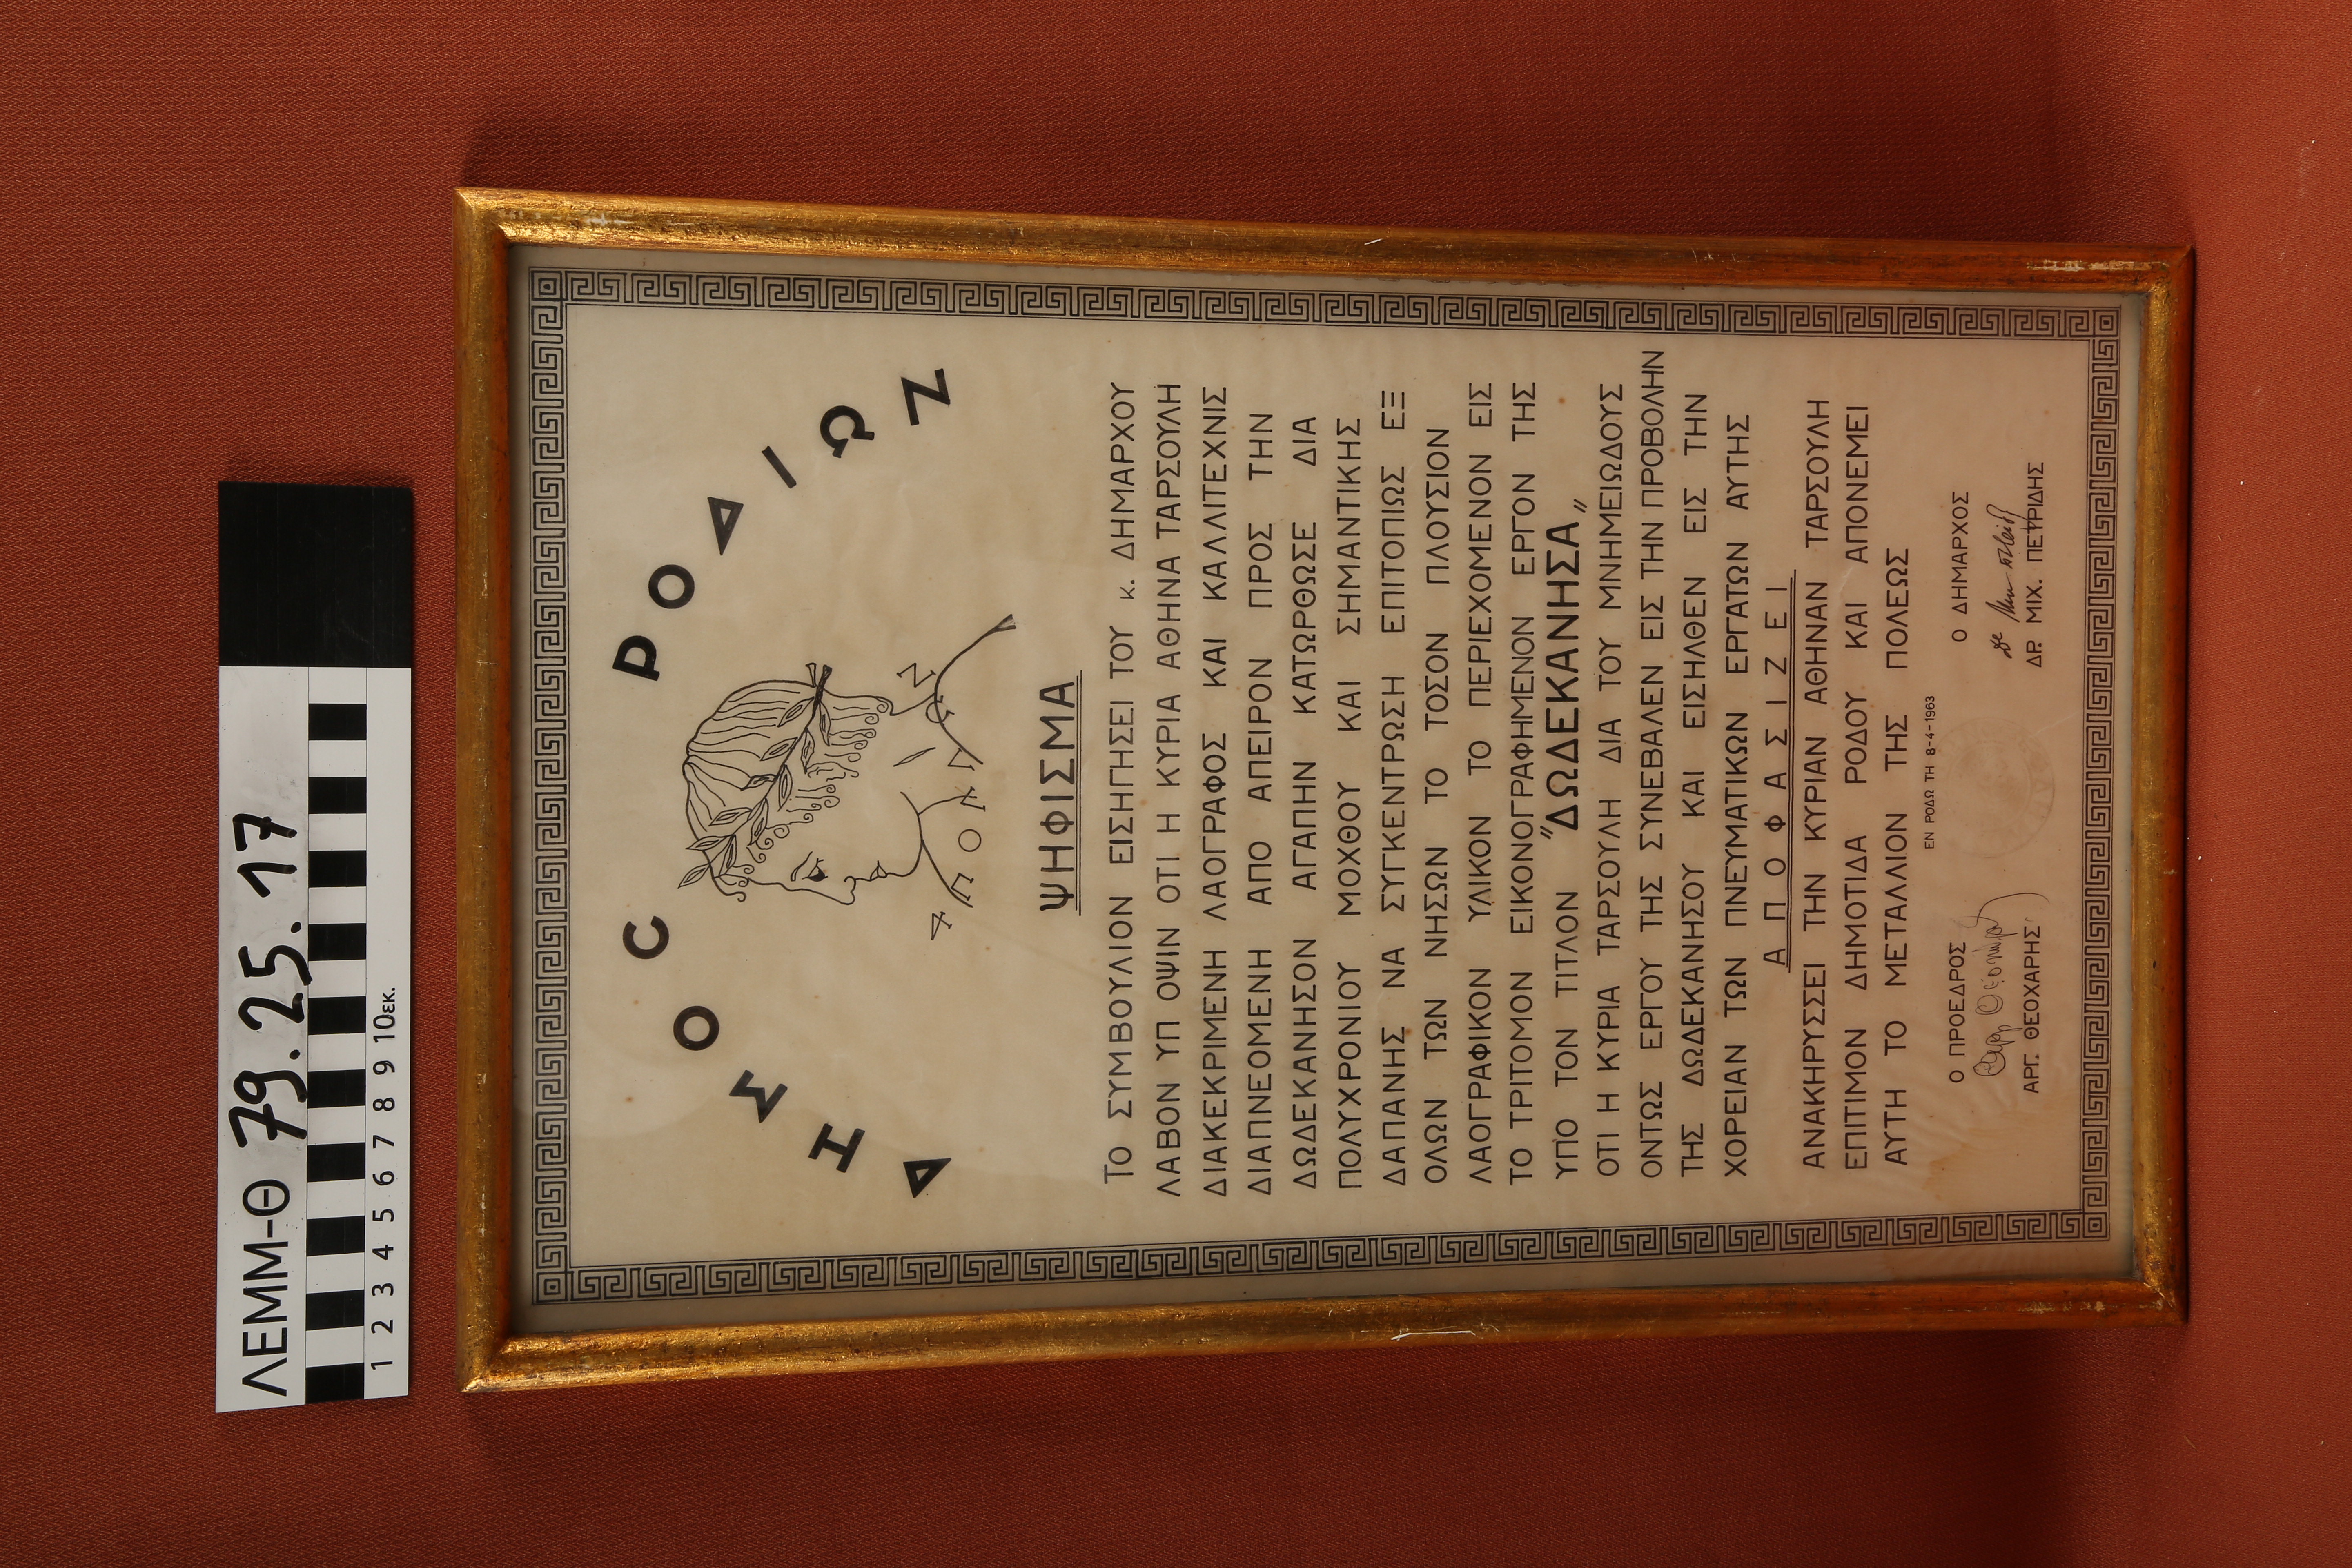 ΛΕΜΜ-Θ 79.25.17
1 2 3 4 5 6 7 8 9 10εκ.
ΔΗΜΟC ΡΟΔΙΩΝ
ΨΗΦΙΣΜΑ
ΤΟ ΣΥΜΒΟΥΛΙΟΝ ΕΙΣΗΓΗΣΕΙ ΤΟΥ κ. ΔΗΜΑΡΧΟΥ
ΛΑΒΟΝ ΥΠ ΟΨΙΝ ΟΤΙ Η ΚΥΡΙΑ ΑΘΗΝΑ ΤΑΡΣΟΥΛΗ
ΔΙΑΚΕΚΡΙΜΕΝΗ ΛΑΟΓΡΑΦΟΣ ΚΑΙ ΚΑΛΛΙΤΕΧΝΙΣ
ΔΙΑΠΝΕΟΜΕΝΗ ΑΠΟ ΑΠΕΙΡΟΝ ΠΡΟΣ ΤΗΝ
ΔΩΔΕΚΑΝΗΣΟΝ ΑΓΑΠΗΝ ΚΑΤΩΡΘΩΣΕ ΔΙΑ
ΠΟΛΥΧΡΟΝΙΟΥ ΜΟΧΘΟΥ ΚΑΙ ΣΗΜΑΝΤΙΚΗΣ
ΔΑΠΑΝΗΣ ΝΑ ΣΥΓΚΕΝΤΡΩΣΗ ΕΠΙΤΟΠΙΩΣ ΕΞ
ΟΛΩΝ ΤΩΝ ΝΗΣΩΝ ΤΟ ΤΟΣΟΝ ΠΛΟΥΣΙΟΝ
ΛΑΟΓΡΑΦΙΚΟΝ ΥΛΙΚΟΝ ΤΟ ΠΕΡΙΕΧΟΜΕΝΟΝ ΕΙΣ
ΤΟ ΤΡΙΤΟΜΟΝ ΕΙΚΟΝΟΓΡΑΦΗΜΕΝΟΝ ΕΡΓΟΝ ΤΗΣ
ΥΠΟ ΤΟΝ ΤΙΤΛΟΝ "ΔΩΔΕΚΑΝΗΣΑ"
ΟΤΙ Η ΚΥΡΙΑ ΤΑΡΣΟΥΛΗ ΔΙΑ ΤΟΥ ΜΝΗΜΕΙΩΔΟΥΣ
ΟΝΤΩΣ ΕΡΓΟΥ ΤΗΣ ΣΥΝΕΒΑΛΕΝ ΕΙΣ ΤΗΝ ΠΡΟΒΟΛΗΝ
ΤΗΣ ΔΩΔΕΚΑΝΗΣΟΥ ΚΑΙ ΕΙΣΗΛΘΕΝ ΕΙΣ ΤΗΝ
ΧΟΡΕΙΑΝ ΤΩΝ ΠΝΕΥΜΑΤΙΚΩΝ ΕΡΓΑΤΩΝ ΑΥΤΗΣ
ΑΠΟΦΑΣΙΖΕΙ
ΑΝΑΚΗΡΥΣΣΕΙ ΤΗΝ ΚΥΡΙΑΝ ΑΘΗΝΑΝ ΤΑΡΣΟΥΛΗ
ΕΠΙΤΙΜΟΝ ΔΗΜΟΤΙΔΑ ΡΟΔΟΥ ΚΑΙ ΑΠΟΝΕΜΕΙ
ΑΥΤΗ ΤΟ ΜΕΤΑΛΛΙΟΝ ΤΗΣ ΠΟΛΕΩΣ
ΕΝ ΡΟΔΩ ΤΗ 8-4-1963
Ο ΠΡΟΕΔΡΟΣ Ο ΔΗΜΑΡΧΟΣ
ΑΡΓ. ΘΕΟΧΑΡΗΣ ΔΡ. ΜΙΧ. ΠΕΤΡΙΔΗΣ